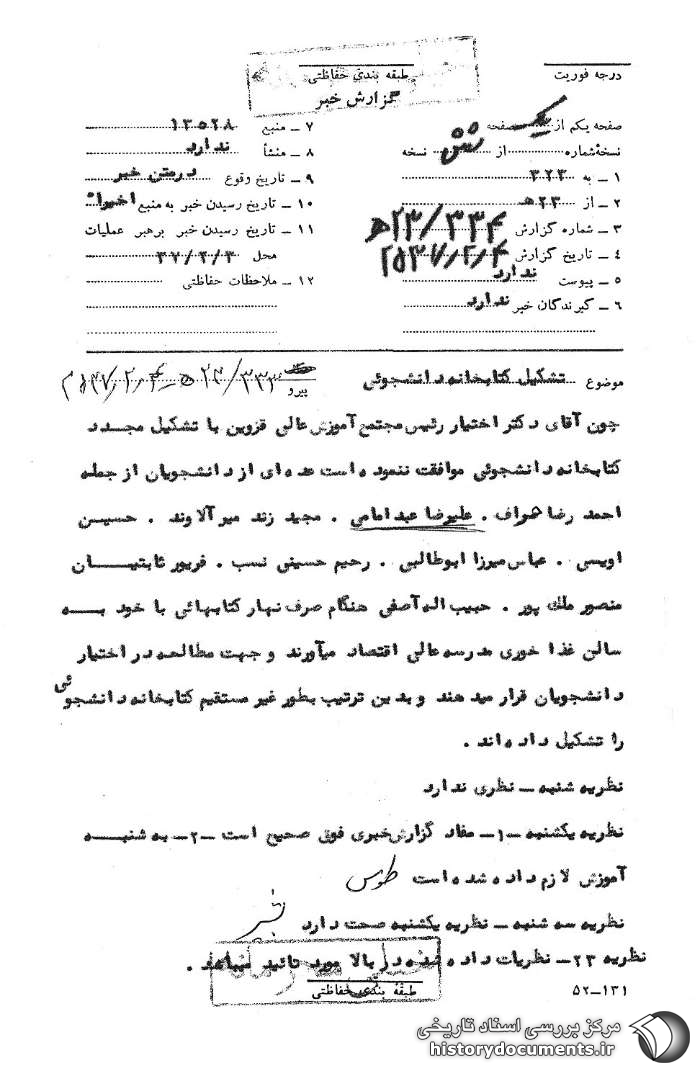 درجه فوریت
طبقه بندی حفاظتی
گزارش خبر
صفحه یکم از یک صفحه
نسخهٔ شماره از شش نسخه
۱ ـ به ۳۲۳
۲ ـ از ۲۳ هـ
۳ ـ شماره گزارش ۲۳/۳۳۴ هـ
۴ ـ تاریخ گزارش ۲۵۳۷/۲/۴
۵ ـ پیوست ندارد
۶ ـ گیرندگان خبر ندارد
۷ ـ منبع ۱۳۵۲۸
۸ ـ منشأ ندارد
۹ ـ تاریخ وقوع درمتن خبر
۱۰ ـ تاریخ رسیدن خبر به منبع اخیرا"
۱۱ ـ تاریخ رسیدن خبر برهبر عملیات
محل ۳۷/۲/۳
۱۲ ـ ملاحظات حفاظتی
موضوع تشکیل کتابخانه دانشجوئی
پیرو
چون آقای دکتر اختیار رئیس مجتمع آموزش عالی قزوین با تشکیل مجدد
کتابخانه دانشجوئی موافقت ننموده است عده ای از دانشجویان از جمله
احمد رضا صراف . علیرضا عبدامامی . مجید زند میرآلاوند . حسین
اویسی . عباس میرزا ابوطالبی . رحیم حسینی نسب . فریور ثابتیان
منصور ملک پور . حبیب اله آصفی هنگام صرف نهار کتابهائی با خود به
سالن غذا خوری مدرسه عالی اقتصاد میآورند و جهت مطالعه در اختیار
دانشجویان قرار میدهند و بدین ترتیب بطور غیر مستقیم کتابخانه دانشجوئی
را تشکیل داده اند .
نظریه شنبه ـ نظری ندارد
نظریه یکشنبه ـ۱ـ مفاد گزارش خبری فوق صحیح است ـ۲ـ به شنبه
آموزش لازم داده شده است طوس
نظریه سه شنبه ـ نظریه یکشنبه صحت دارد
نظریه ۲۳ـ نظریات داده شده در بالا مورد تائید میباشد .
طبقهٔ بندی حفاظتی
۵۲ـ۱۳۱
مرکز بررسی اسناد تاریخی
historydocuments.ir